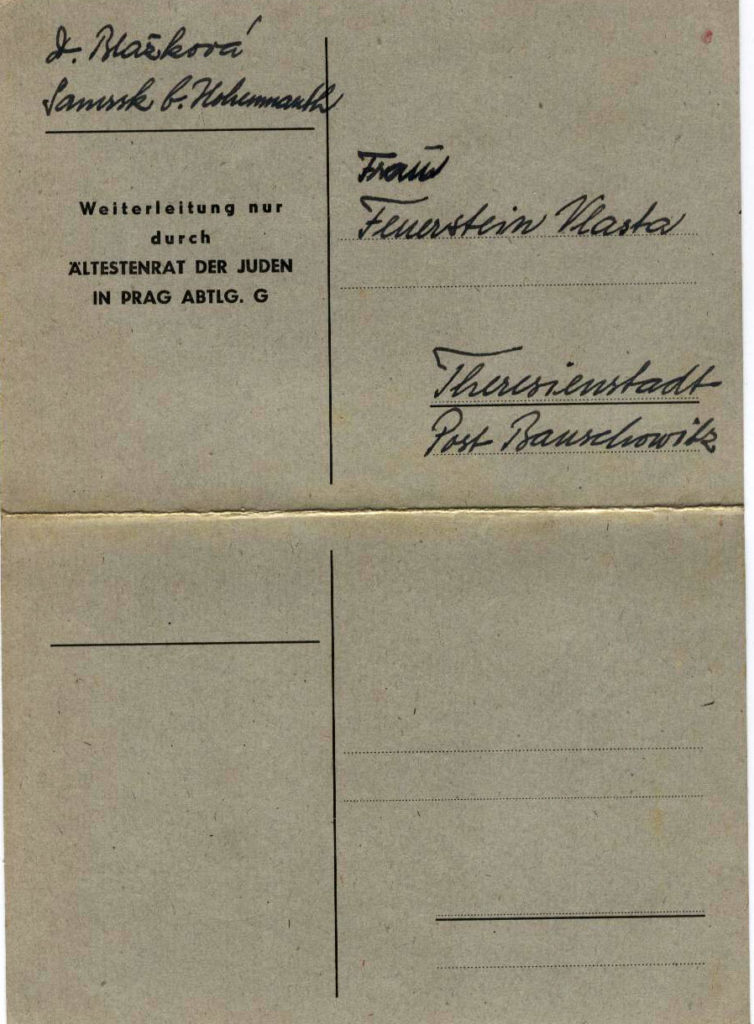 Blažková
Samrsk b. Hohenmauth
Weiterleitung nur
durch
ÄLTESTENRAT DER JUDEN
IN PRAG ABTLG. G
Frau
Feuerstein Vlasta
Theresienstadt
Post Bauschowitz